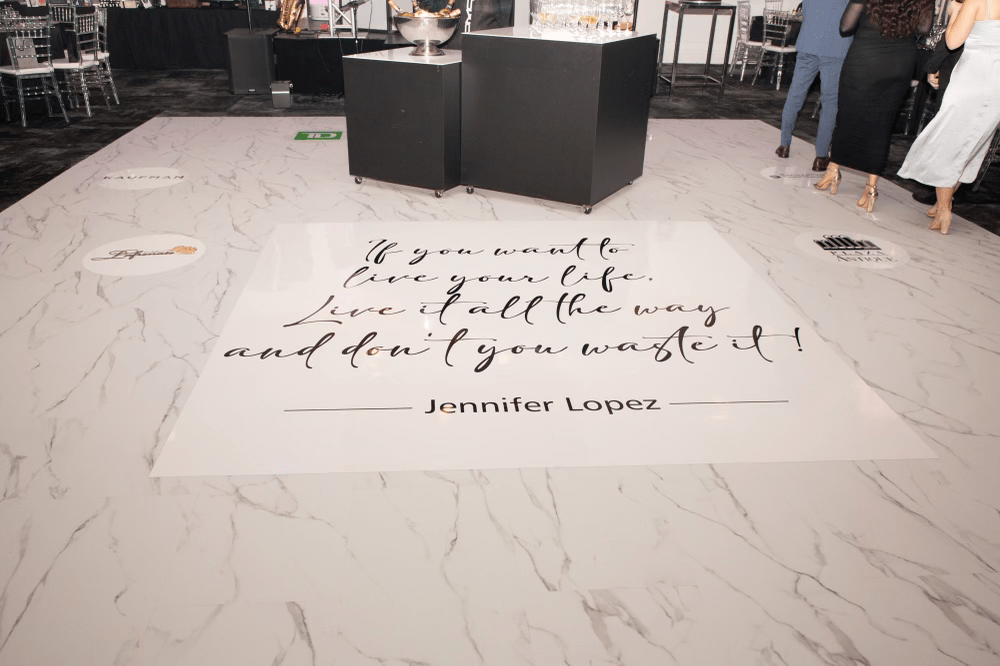 TD
KAUFMAN
PLAZA
ANTIQUE
If you want to
live your life.
Live it all the way
and don't you waste it!
Jennifer Lopez